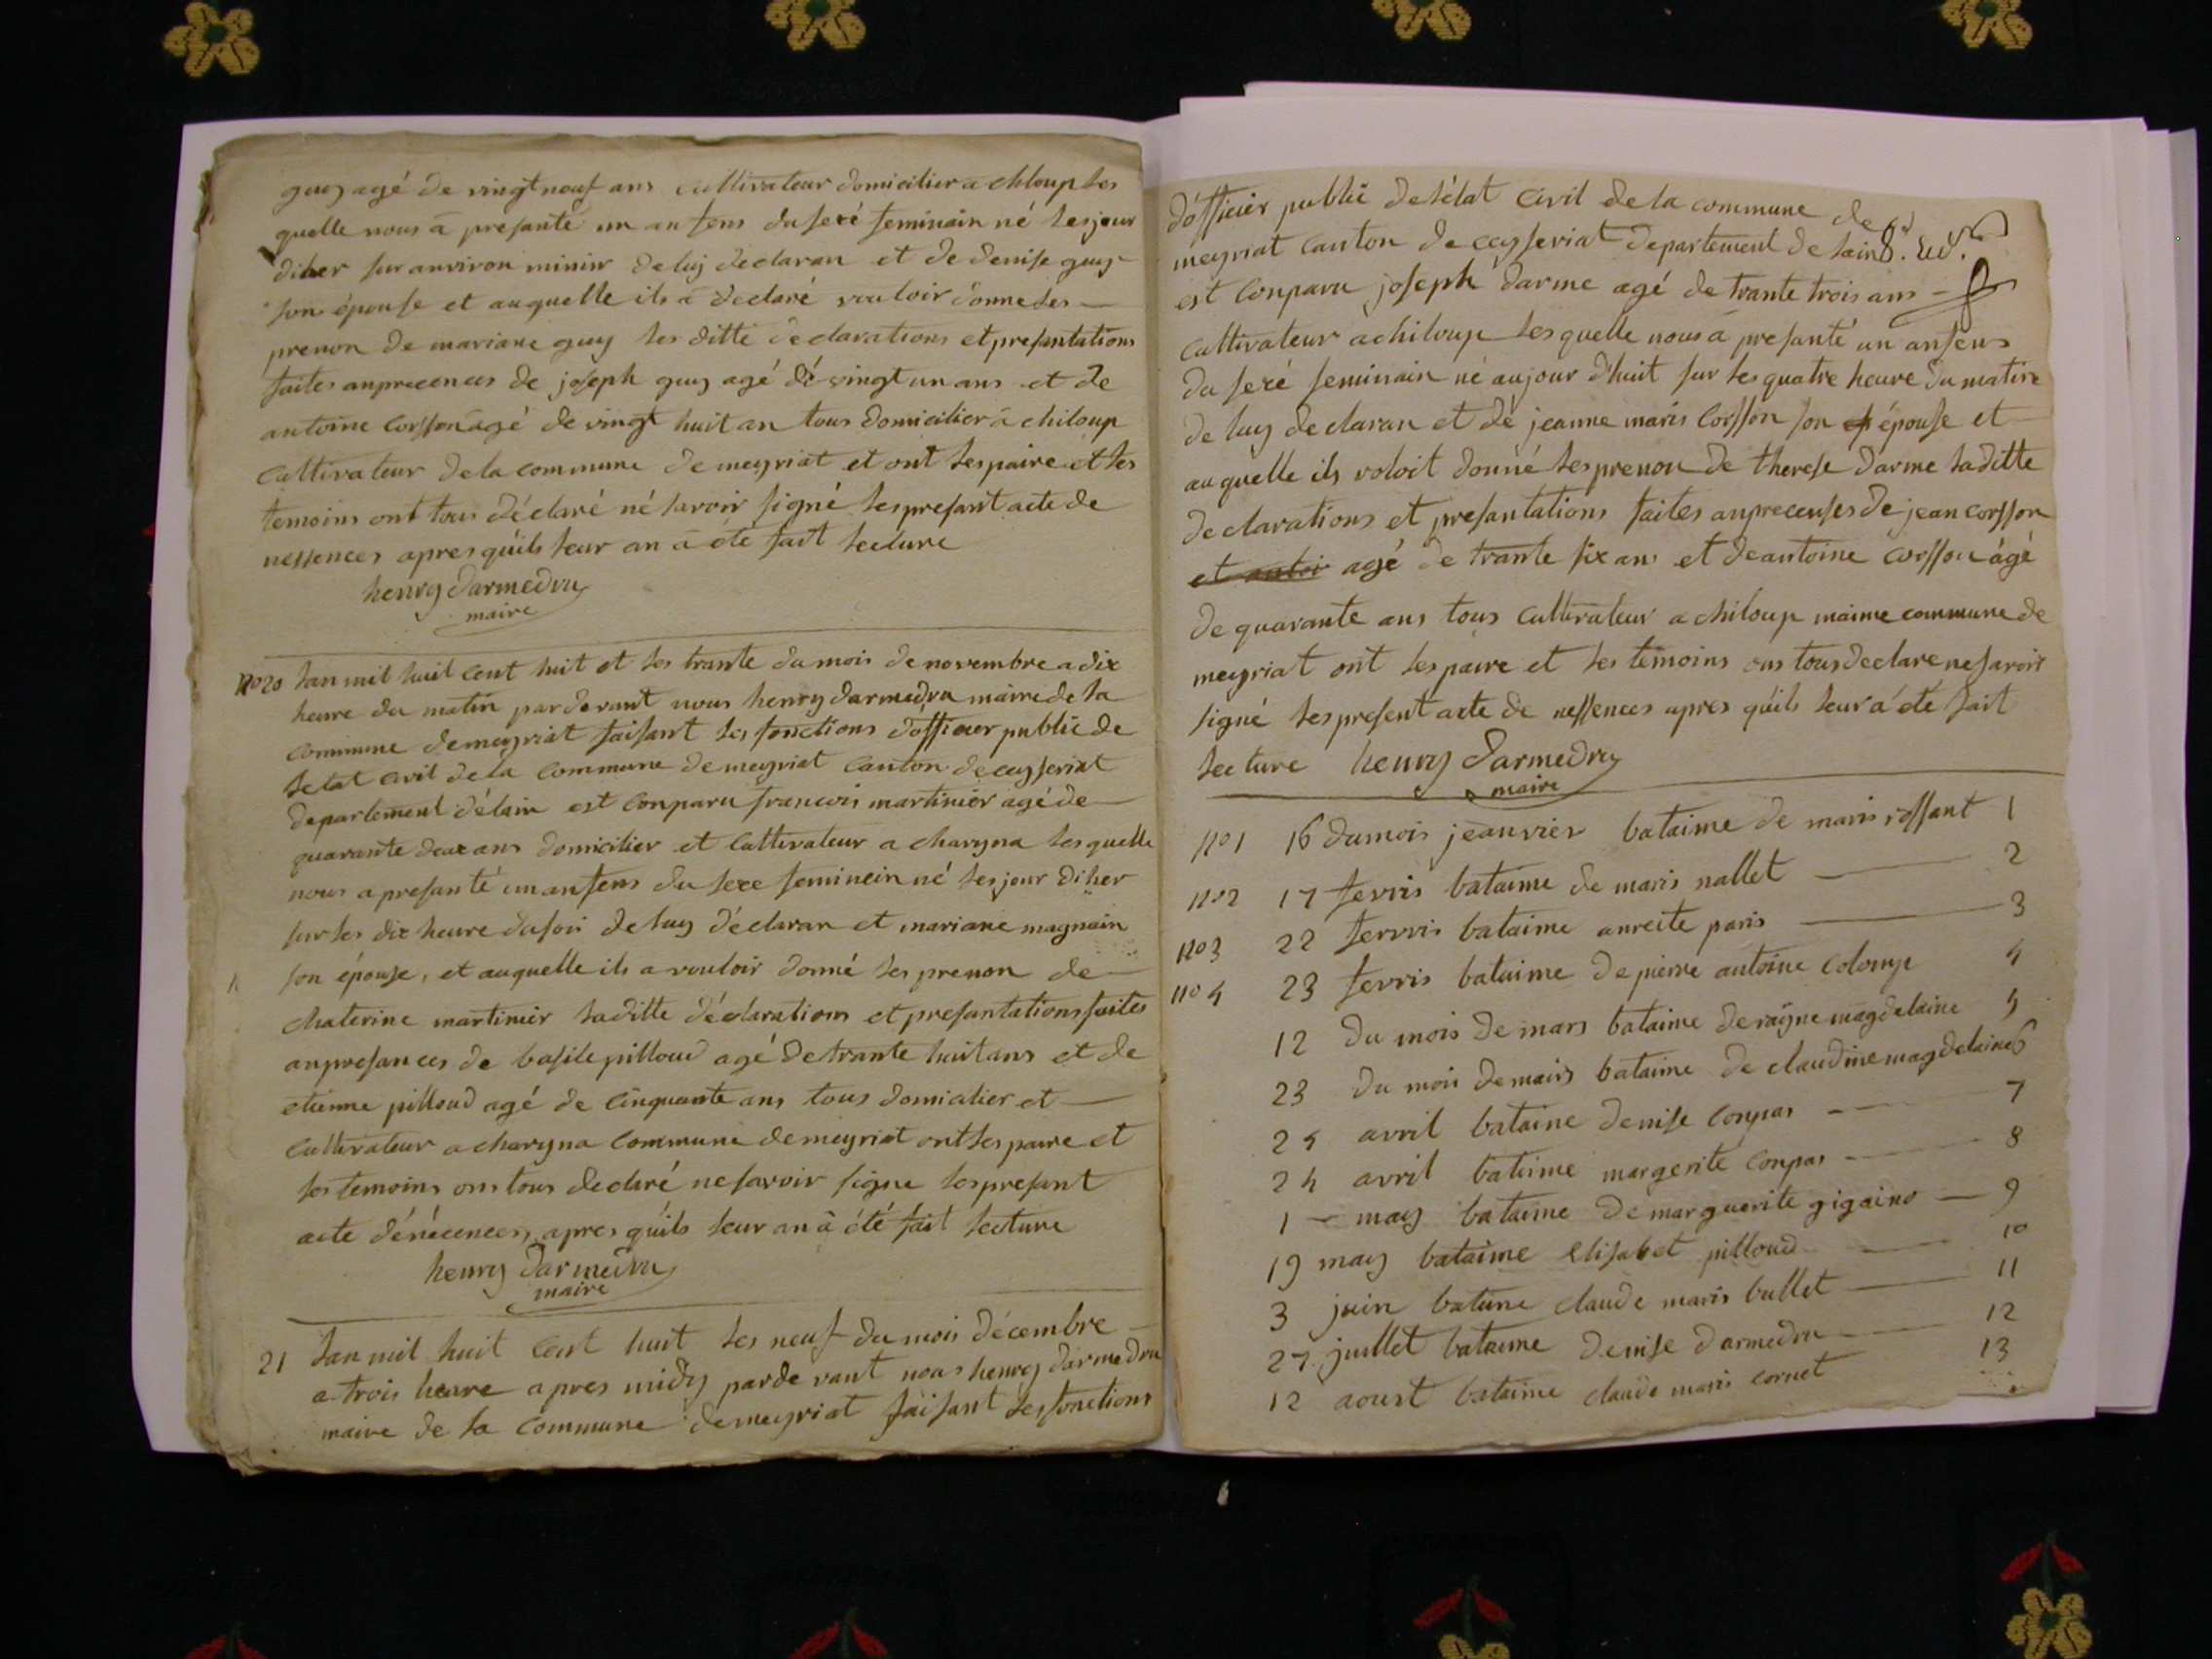 guy agé de vingt neuf ans cultivateur domicilier a chiloup les
quelle nous a presanté un anfens du sexé feminain né lesjour
diher sur anviron minir de luy declaran et de denise guy
son épouse et auquelle ils a declaré vouloir donneles
prenon de mariane guy les ditte declarations et presantations
faites anprecences de joseph guy agé dé vingt un ans et de
antoine corsson agé de vingt huit an tous domicilier a chiloup
Cultivateur de la commune de meyriat et ont lespaire et les
temoins ont tous déclaré né savoir signé lespresant acte de
nessences apres quils leur an a été fait lecture
henry darmedru
maire
no 20 lan mil huit cent huit et les trante du mois de novembre a dix
heure du matin pardevant nous henry darmedru maire de la
commune demeyriat faisant les fonctions d'officier public de
letat civil de la commune demeyriat canton de ceyseriat
departement délain est conparu francois martinier agé de
quarante deux ans domicilier et cultivateur a charyna lesquelle
nous a presanté un anfens du sexe feminein né lesjour diher
sur les dix heure dusoir de luy déclaran et mariane magnain
son épouse, et auquelle ils a vouloir donné les prenon de
chaterine martinier laditte déclarations et presantations faites
anpresances de basile pilloud agé detrante huit ans et de
etienne pilloud agé de cinquante ans tous domicilier et
cultivateur a charyna commune demeyriat ont les paire et
les temoins ons tous declaré ne savoir signe les presant
acte dénécences, apres quils leur an à été fait lecture
henry darmedru
maire
21 lan mil huit cent huit les neuf du mois décembre
a trois heure apres midy parde vant nous henry darmedru
maire de la commune demeyriat faisant les fonctions
d'officier public de létat civil de la commune de
meyriat canton de ceyseriat departement de lain
est conparu joseph darme agé de trante trois ans
cultivateur a chiloup lesquelle nous a presanté un anfens
du sexé feminain né aujour dhuit sur les quatre heure du matin
de luy declaran et de jeanne maris corsson son épouse et
auquelle ils voloit donné les prenon de therese darme laditte
declarations et presantations faites anprecenses de jean corsson
et antoi agé de trante six ans et de antoine corsson ágé
de quarante ans tous cultivateur a chiloup maime commune de
meyriat ont lespaire et les temoins ons tous declare ne savoir
signé lespresent acte de nessences apres quils leur a été fait
lecture henry darmedru
maire
no 1 16 du mois jeanvier bataime de maris rossant 1
no 2 17 fevris bataime de maris nallet 2
no 3 22 fevvris bataime anreite paris 3
no 4 23 fevris bataime de pierre antoine coloup 4
12 du mois de mars bataime de raÿne magdelaine 5
23 du mois de mars bataime de claudine magdelaine 6
24 avril bataine denise conpas 7
24 avril bataime margerite conpas 8
1 may bataime de marguerite gigaino 9
19 may bataime Elisabet pilloud 10
3 juin bataime claude maris bullet 11
27 juillet bataime denise darmedru 12
12 aoust bataime claude maris cornet 13